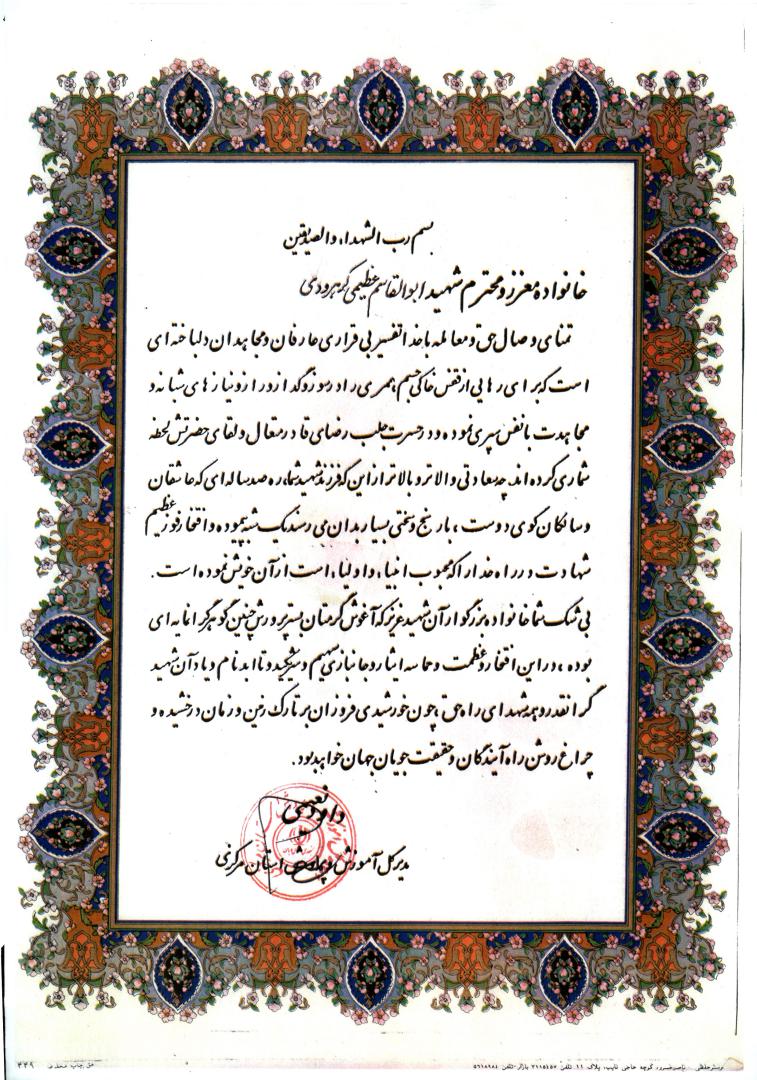 بسم رب الشهداء والصدیقین
خانواده معزز و محترم شهید ابوالقاسم عظیمی کرهرودی
تمنای وصال حق و معامله با خدا تفسیر بی قراری عارفان و مجاهدان دلباخته ای
است که برای رهایی از قفس خاکی جسم، عمری را در سوز و گداز و راز و نیازهای شبانه و
مجاهدت با نفس سپری نموده و در حسرت جلب رضای قادر متعال و لقای حضرتش لحظه
شماری کرده اند چه سعادتی والاتر و بالاتر از این که فرزند شهید شما، ره صد ساله ای که عاشقان
و سالکان کوی دوست، با رنج و سختی بسیار بدان می رسند یک شبه پیموده و افتخار فوز عظیم
شهادت در راه خدا را که محبوب انبیاء و اولیاء است از آن خویش نموده است.
بی شک شما خانواده بزرگوار آن شهید عزیز که آغوش گرمتان بستر پرورش چنین گوهر گرانمایه ای
بوده، در این افتخار و عظمت و حماسه ایثار و جانبازی سهیم و شریکید و تا ابد نام و یاد آن شهید
گرانقدر و همه شهدای راه حق، چون خورشیدی فروزان بر تارک زمین و زمان درخشیده و
چراغ روشن راه آیندگان و حقیقت جویان جهان خواهد بود.
داود نعیمی
مدیر کل آموزش و پرورش استان مرکزی
ناصرخسرو، کوچه حاجی نایب، پلاک ۱۱ تلفن ۳۱۱۵۱۵۷ بازار-تلفن ۵۶۱۸۹۸۴
حق چاپ محفوظ ۳۳۹